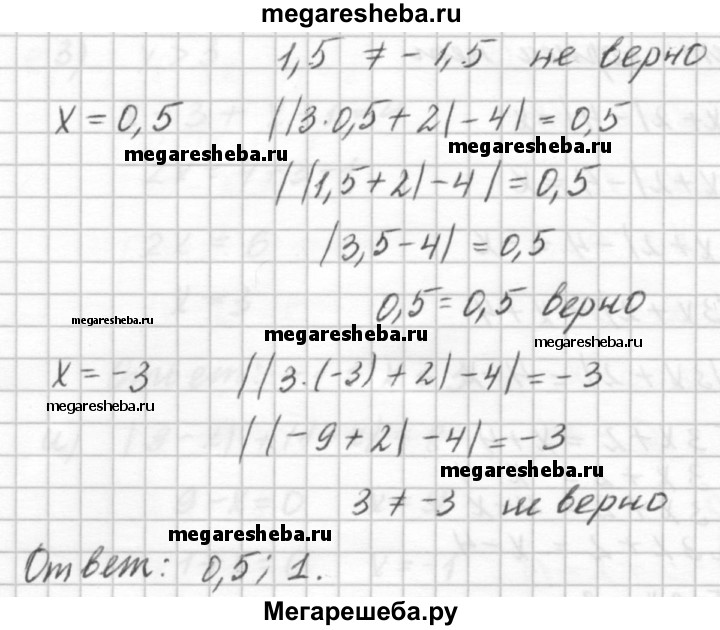 megaresheba.ru
1,5 ≠ -1,5 не верно
x = 0,5 ||3·0,5+2|-4| = 0,5
megaresheba.ru megaresheba.ru
||1,5+2|-4| = 0,5
|3,5-4| = 0,5
0,5 = 0,5 верно
megaresheba.ru megaresheba.ru megaresheba.ru
x = -3 ||3·(-3)+2|-4| = -3
megaresheba.ru
||-9+2|-4| = -3
megaresheba.ru
3 ≠ -3 не верно
megaresheba.ru
Ответ: 0,5; 1.
Мегарешеба.ру